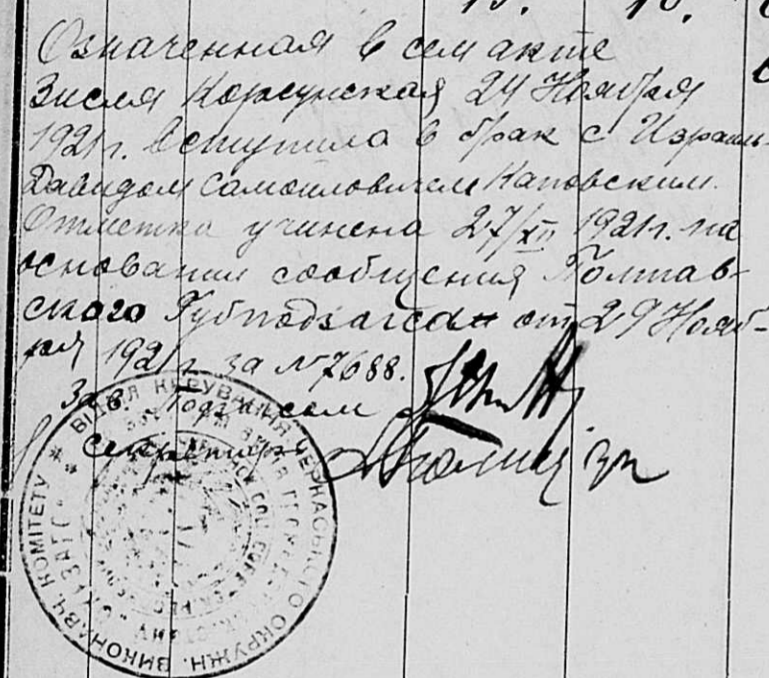 15. 16.
Означенная в сем акте
Зисля Корсунская 24 Ноября
1921 г. вступила в брак с Израиль-
Давидом Самойловичем Каповским.
Отметка учинена 27/XII 1921 г. на
основании сообщения Полтав-
ского Губподзагса от 29 Нояб-
ря 1921 г. за № 7688.
Зав. Подзагсом
Секретарь
ВІДДІЛ КЕРУВАННЯ ЧЕРКАСЬКОГО ОКРУЖН. ВИКОНАВЧ. КОМІТЕТУ